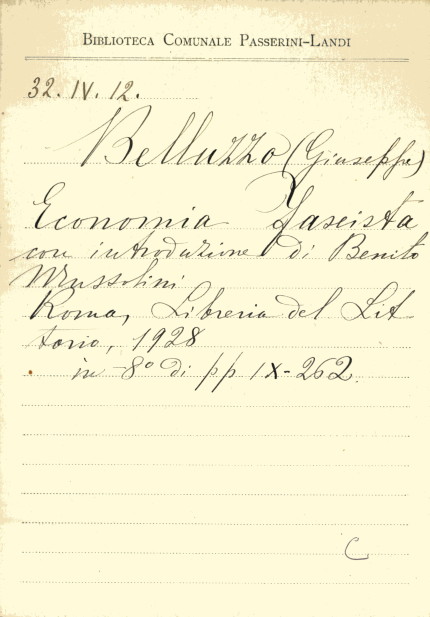 BIBLIOTECA COMUNALE PASSERINI-LANDI
32. IV. 12.
Belluzzo (Giuseppe)
Economia fascista
con introduzione di Benito
Mussolini
Roma, Libreria del Lit
torio, 1928
in -8° di pp IX-262
C